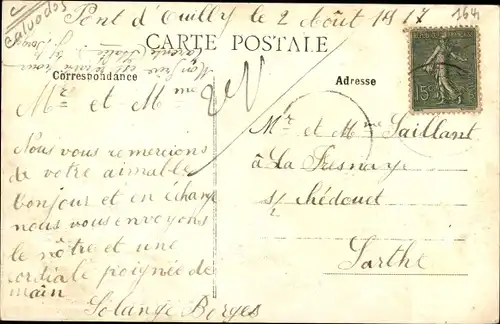 Calvados
Pont d'Ouilly le 2 Août 1917
164
CARTE POSTALE
Correspondance
Adresse
15c
Mr et Mme
Nous vous remercions
de votre aimable
bonjour et en échange
nous vous envoyons
le nôtre et une
cordiale poignée de
main
Solange Borges
Mr et Mme Saillant
à La Fresnaye
s/ Chédouet
Sarthe